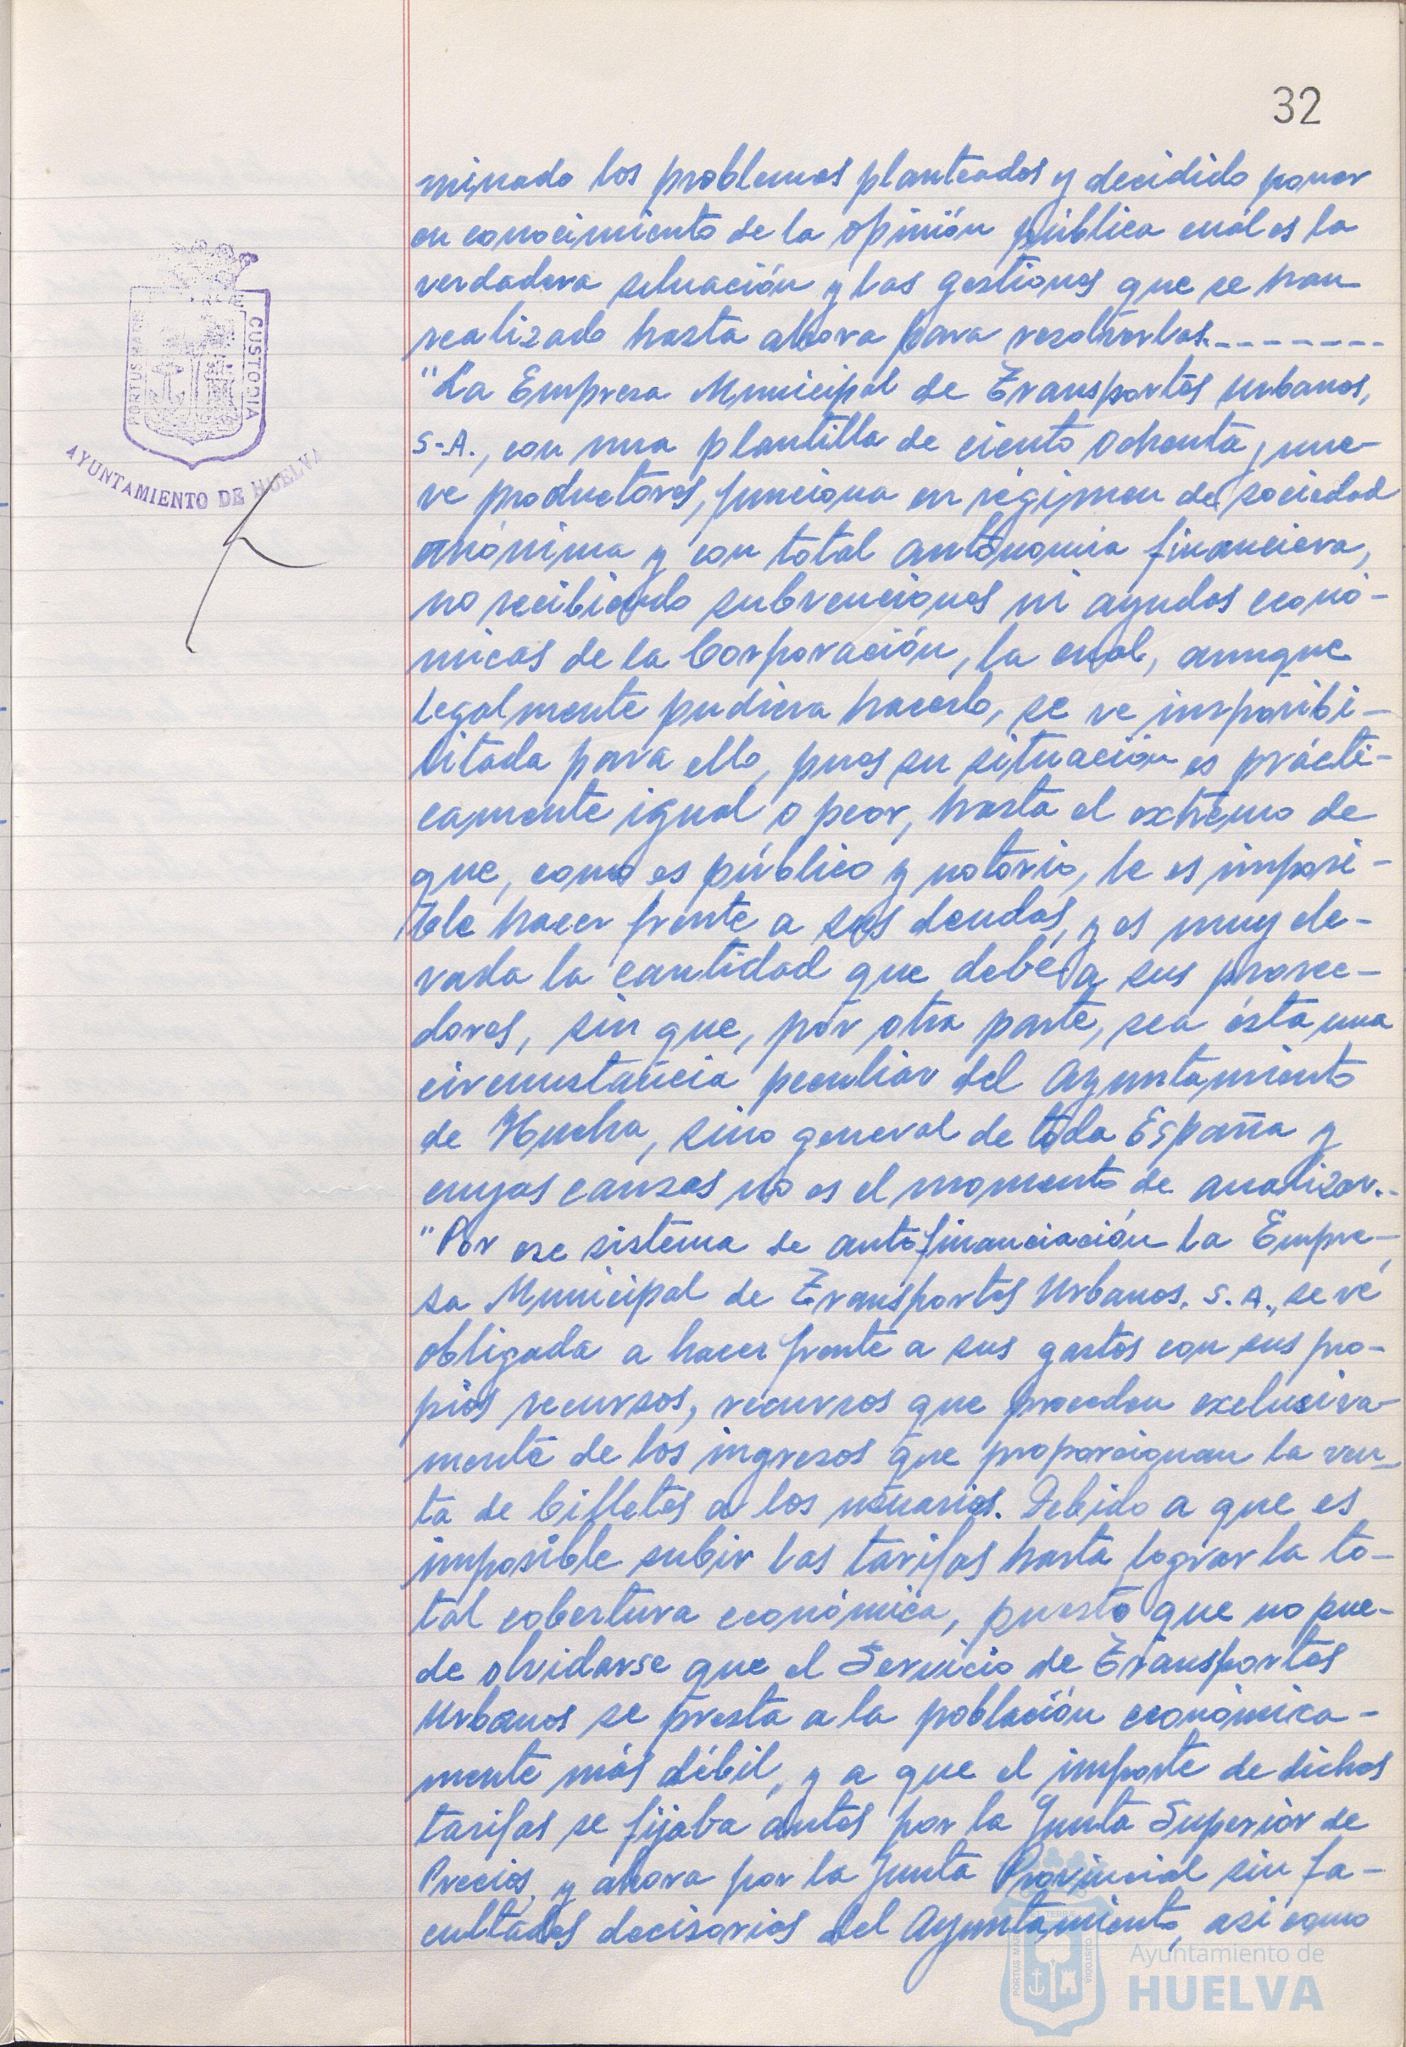 32
minado los problemas planteados y decidido poner
en conocimiento de la opinión pública cuál es la
verdadera situación y las gestiones que se han
realizado hasta ahora para resolverlas.-------
"La Empresa Municipal de Transportes Urbanos,
S.A., con una plantilla de ciento ochenta y nue-
ve productores, funciona en régimen de sociedad
anónima y con total autonomía financiera,
no recibiendo subvenciones ni ayudas econó-
micas de la Corporación, la cual, aunque
legalmente pudiera hacerlo, se ve imposibi-
litada para ello, pues su situación es prácti-
camente igual o peor, hasta el extremo de
que, como es público y notorio, le es imposi-
ble hacer frente a sus deudas, y es muy ele-
vada la cantidad que debe a sus provee-
dores, sin que, por otra parte, sea ésta una
circunstancia peculiar del Ayuntamiento
de Huelva, sino general de toda España y
cuyas causas no es el momento de analizar.-
"Por ese sistema de autofinanciación la Empre-
sa Municipal de Transportes Urbanos, S.A., se vé
obligada a hacer frente a sus gastos con sus pro-
pios recursos, recursos que proceden exclusiva-
mente de los ingresos que proporcionan la ven-
ta de billetes a los usuarios. Debido a que es
imposible subir las tarifas hasta lograr la to-
tal cobertura económica, puesto que no pue-
de olvidarse que el Servicio de Transportes
Urbanos se presta a la población económica-
mente más débil, y a que el importe de dichas
tarifas se fijaba antes por la Junta Superior de
Precios, y ahora por la Junta Provincial sin fa-
cultades decisorias del Ayuntamiento, así como
PORTUS MARIS
CUSTODIA
AYUNTAMIENTO DE HUELVA
Ayuntamiento de
HUELVA